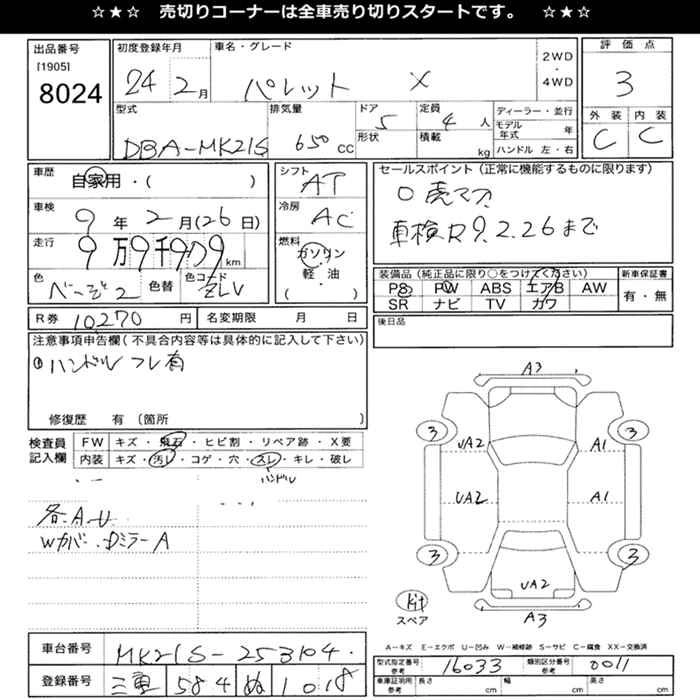 ☆★☆ 売切りコーナーは全車売り切りスタートです。 ☆★☆
出品番号 初度登録年月 車名・グレード 2WD・4WD 評価点
[1905]
8024 24 2月 パレット X 3
型式 排気量 ドア 5 定員 4人 ディーラー・並行 外装 内装
DBA-MK21S 650cc 形状 積載 kg モデル年式 年 C C
ハンドル 左・右
車歴 自家用・( ) シフト AT セールスポイント(正常に機能するものに限ります)
車検 9年2月(26日) 冷房 AC
車検R9.2.26まで
走行 9万9千 km 燃料 ガソリン・軽・油 ( )
色 色替 色コード ZLV 装備品(純正品に限り○をつけてください) 新車保証書
PS PW ABS エアB AW 有・無
SR ナビ TV カワ
R券 10,270円 名変期限 月 日 後日品
注意事項申告欄(不具合内容等は具体的に記入して下さい)
① ハンドル フレ有
修復歴 有(箇所 )
検査員記入欄 FW キズ・飛石・ヒビ割・リペア跡・X要
内装 キズ・汚レ・コゲ・穴・スレ・キレ・破レ
ハンドル
各A.U
Wカバー.Dミラー A
A3
3 3
UA2 A1
UA2 A1
3 3
UA2
Kit
スペア A3
A-キズ E-エクボ U-凹み W-補修跡 S-サビ C-腐食 XX-交換済
車台番号 MK21S-253104
型式指定番号 参考 16033 類別区分番号 参考 0011
登録番号 三重 584 ぬ 1018
車庫証明用 参考 長さ cm 幅 cm 高さ cm